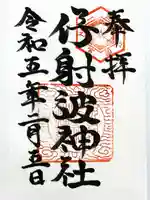 奉拝
伊射波神社
令和五年二月五日